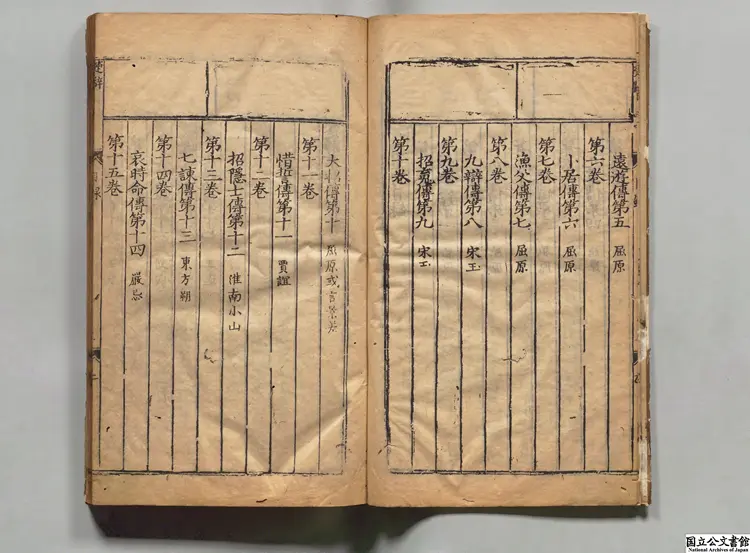 遠遊傳第五 屈原
第六卷
卜居傳第六 屈原
第七卷
漁父傳第七 屈原
第八卷
九辯傳第八 宋玉
第九卷
招䰟傳第九 宋玉
第十卷
大招傳第十 屈原或言景差
第十一卷
惜誓傳第十一 賈誼
第十二卷
招隱士傳第十二 淮南小山
第十三卷
七諫傳第十三 東方朔
第十四卷
哀時命傳第十四 嚴忌
第十五卷
楚辭
目錄
二
国立公文書館
National Archives of Japan